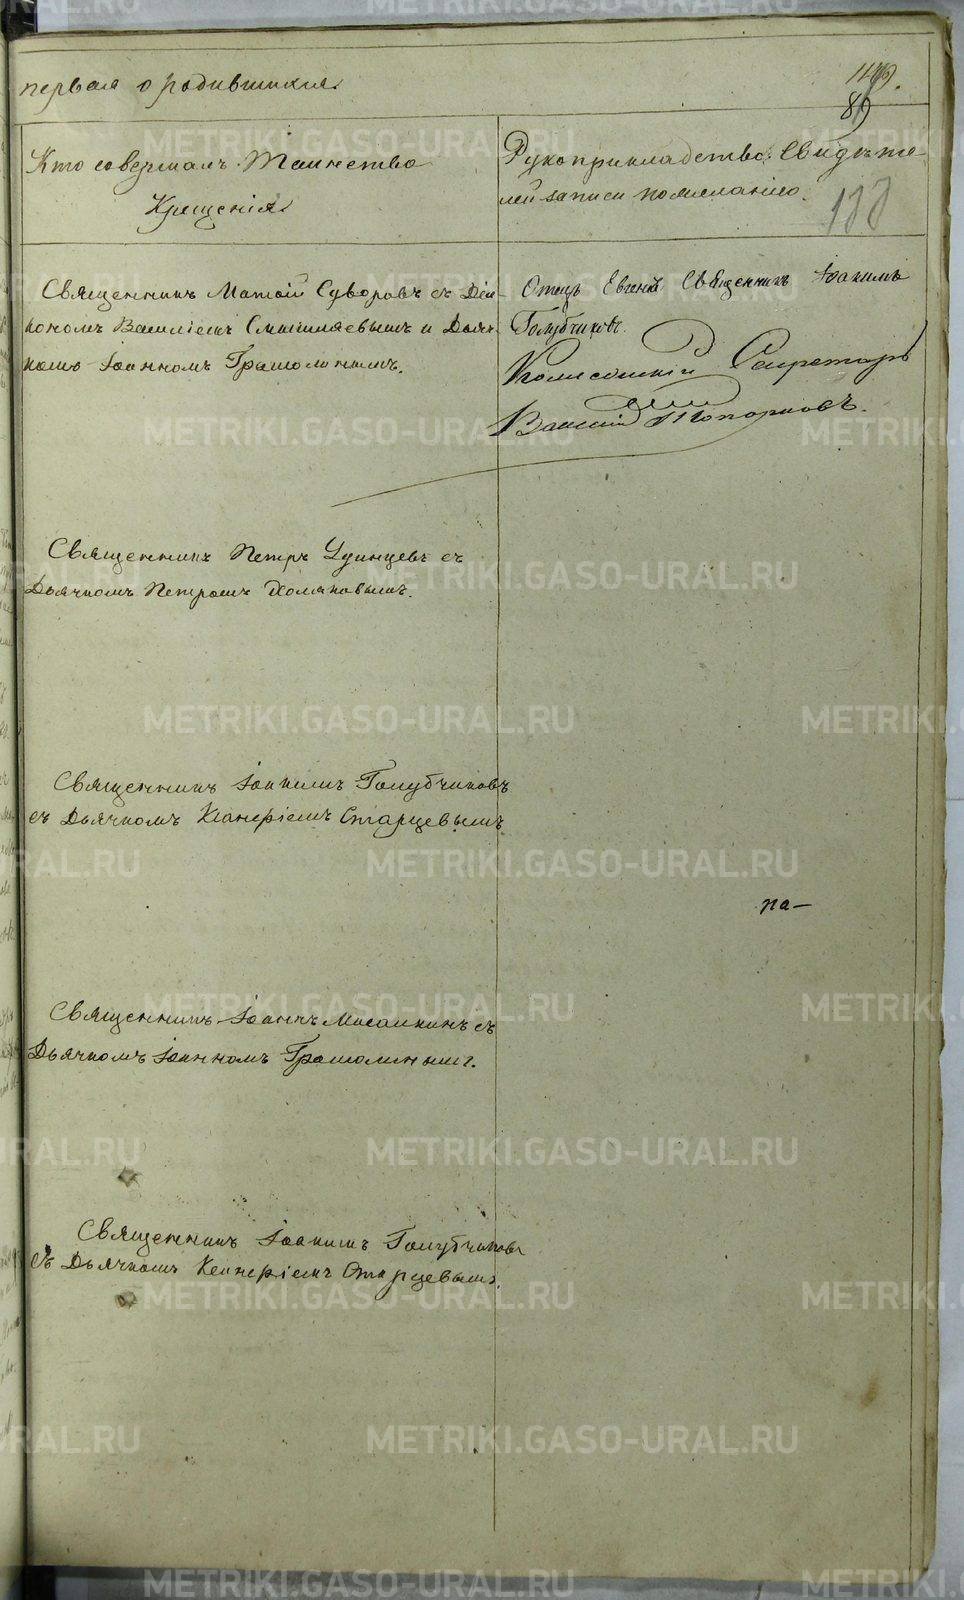 первая о родившихся.
89
Кто совершалъ Таинство
Крещенія.
Рукоприкладство Свидѣте-
лей записи по желанію.
Священникъ Матѳій Суворовъ съ Діа-
кономъ Василіемъ и Дьяч-
комъ Іоанномъ
Отецъ Евгеній Священникъ Іоакимъ
Голубчиковъ.
Секретарь
Василій Топорковъ.
Священникъ Петръ Удинцевъ съ
Дьячкомъ Петромъ Хомяковымъ.
Священникъ Іоакимъ Голубчиковъ
съ Дьячкомъ Старцевымъ
па—
Священникъ Іоаннъ съ
Дьячкомъ Іоанномъ
Священникъ Іоакимъ Голубчиковъ
съ Дьячкомъ Старцевымъ.
METRIKI.GASO-URAL.RU